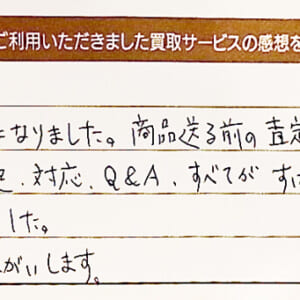 ご利用いただきました買取サービスの感想を
になりました。商品送る前の査定
対応、Q&A、すべてが す
した。
がいします。